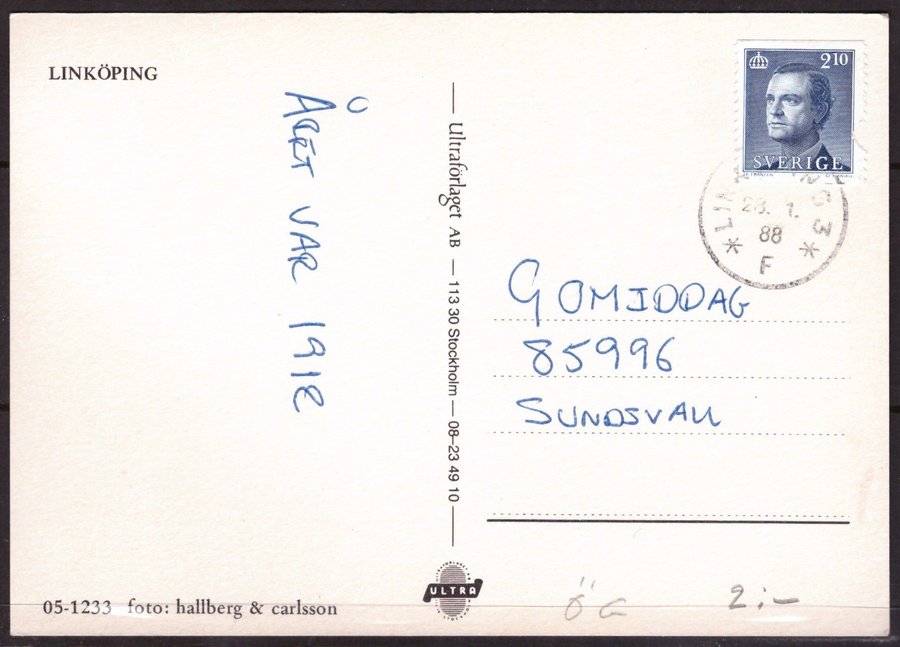 LINKÖPING
ÅRET VAR 1918
Ultraförlaget AB — 113 30 Stockholm — 08-23 49 10
2 10
SVERIGE
28. 1.
88
F
GOMIDDAG
85996
SUNDSVALL
ULTRA
05-1233 foto: hallberg & carlsson
ÖG 2:-